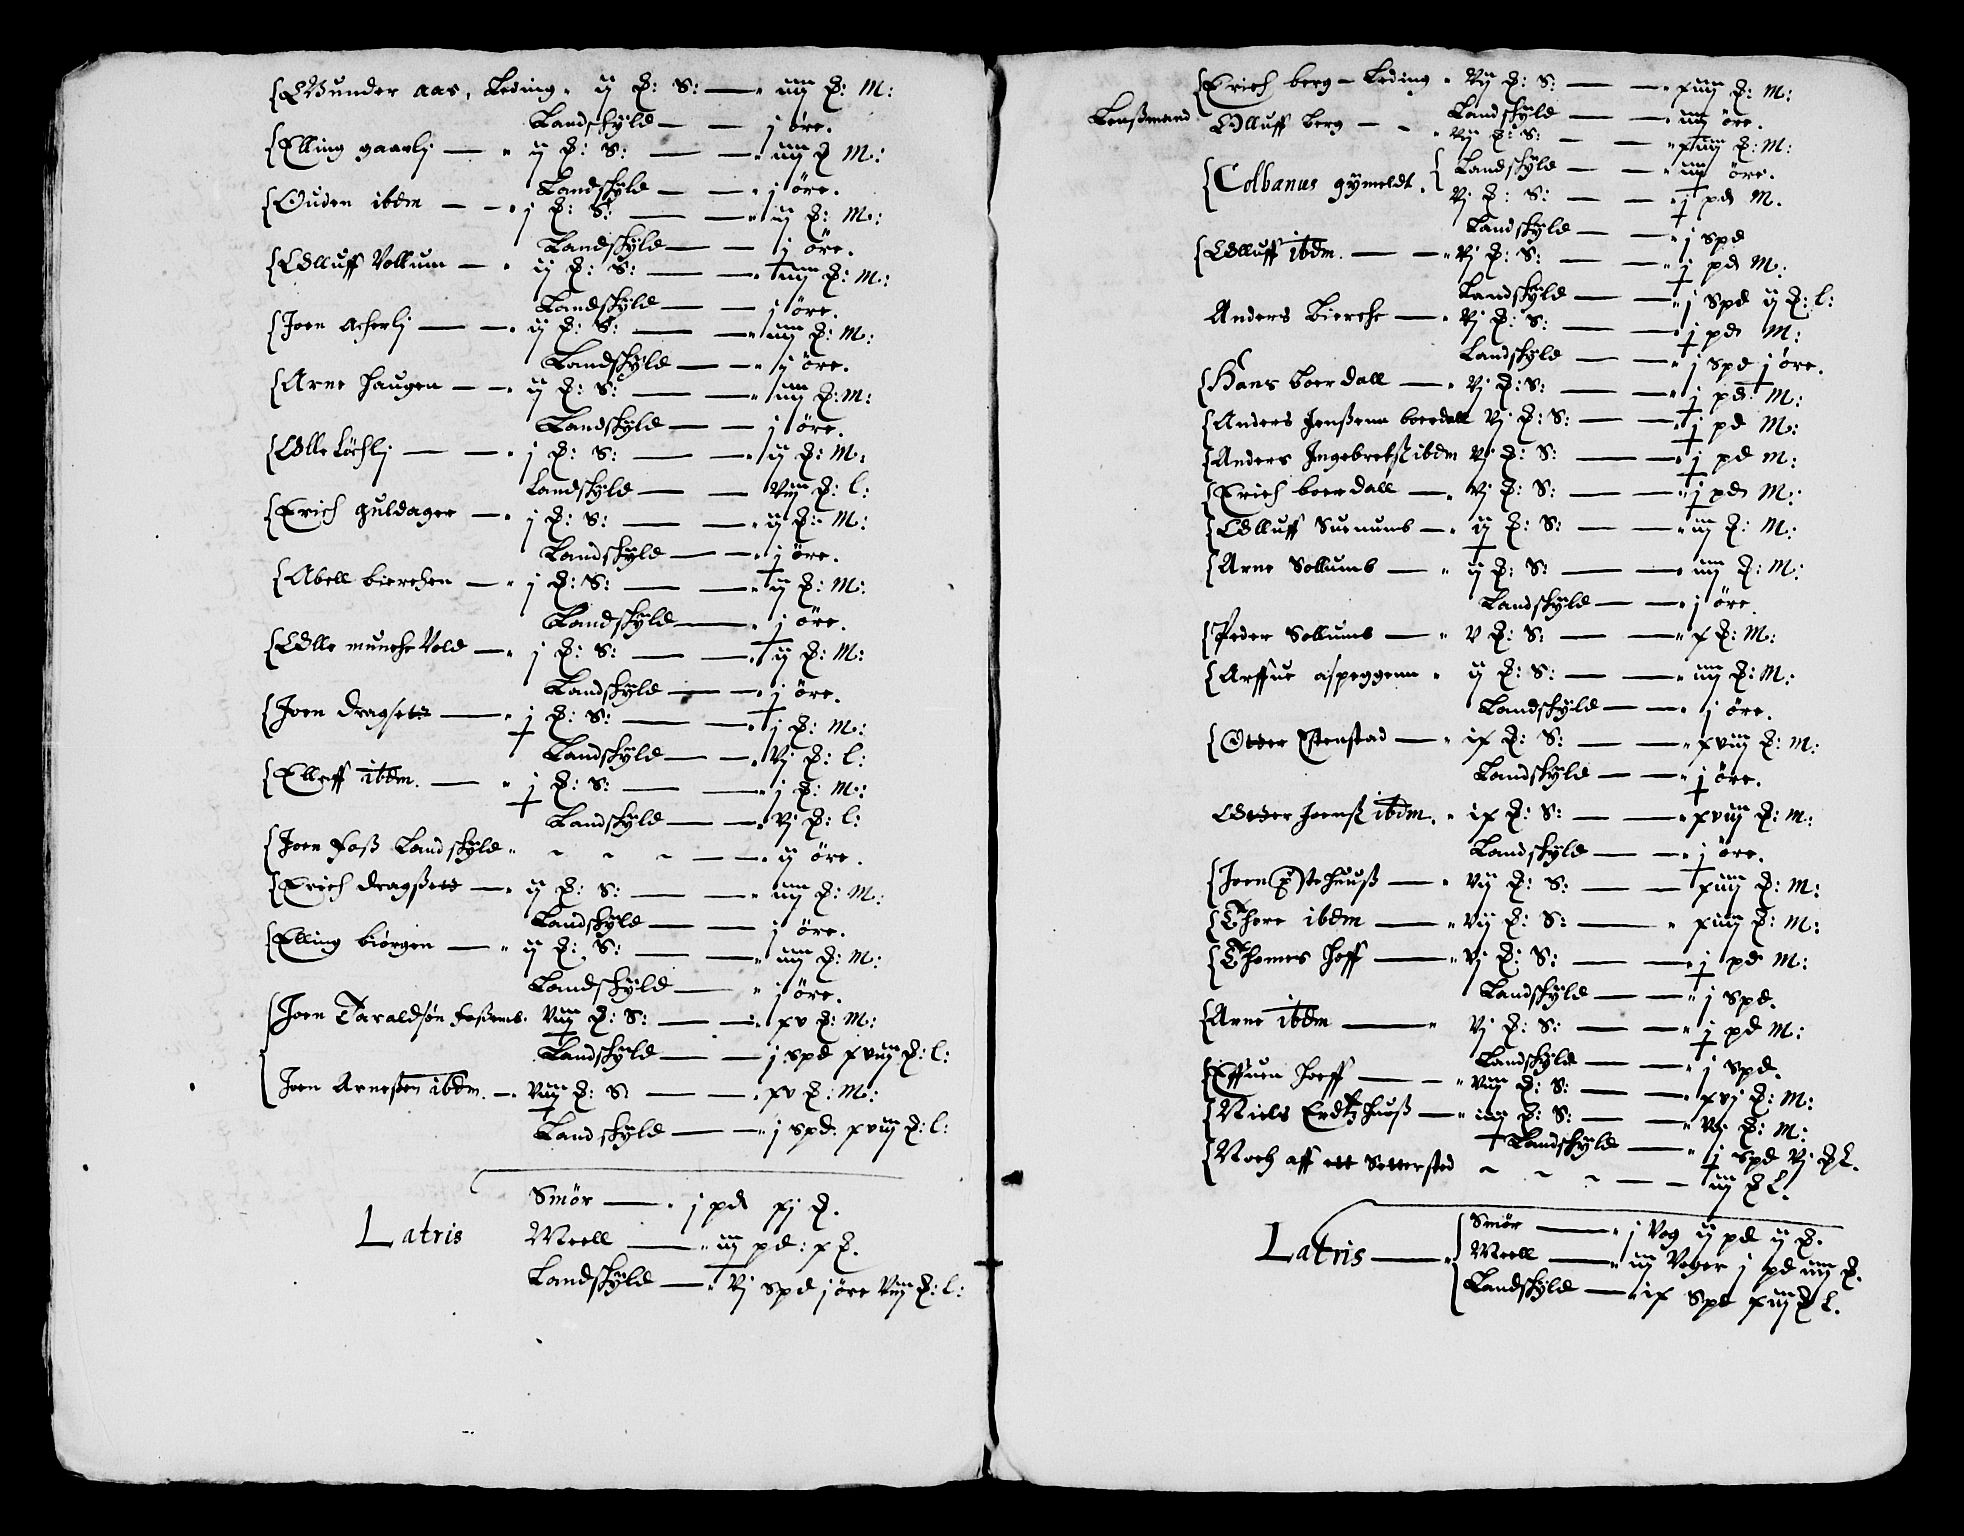 Gunder aas, Leding. ij ℔: S: — iiij ℔: M:
Landskyld — j öre.
Elling gaarlj — ij ℔: S: — iiij ℔ M:
Landskyld — j öre.
Ouden ibdm — j ℔: S: — ij ℔: M:
Landskyld — j öre.
Olluff Vollum — ij ℔: S: — iiij ℔: M:
Landskyld — j öre.
Joen acherlj — ij ℔: S: — iiij ℔: M:
Landskyld — j öre.
Arne haugen — ij ℔: S: — iiij ℔: M:
Landskyld — j öre.
Olle Löchlj — j ℔: S: — ij ℔: M:
Landskyld — viij ℔: l:
Erich guldager — j ℔: S: — ij ℔: M:
Landskyld — j öre.
Abell bierchen — j ℔: S: — ij ℔: M:
Landskyld — j öre.
Olle munche Vold — j ℔: S: — ij ℔: M:
Landskyld — j öre.
Joen dragsett — j ℔: S: — j ℔: M:
Landskyld — vj ℔: l:
Elleff ibdm. — j ℔: S: — j ℔: M:
Landskyld — vj ℔: l:
Joen foß Landskyld — ij öre.
Erich dragßett — ij ℔: S: — iiij ℔: M:
Landskyld — j öre.
Elling biörgen — ij ℔: S: — iiij ℔: M:
Landskyld — j öre.
Joen Taraldsön foßemb. viij ℔: S: — xv ℔: M:
Landskyld — j spd xviij ℔: l:
Joen Arneßen ibdm. — viij ℔: S: — xv ℔: M:
Landskyld — j spd: xviij ℔: l:
Smör — j pd xj ℔.
Latris Meell — iij pd: x ℔.
Landskyld — vj spd j öre viij ℔: l:
Erich berg — Leding. vij ℔: S: — xiiij ℔: M:
Landskyld — iij öre.
Lenßmand Olluff berg — vij ℔: S: — xiiij ℔: M:
Landskyld — iij öre.
Colbanus gÿmeldt. vj ℔: S: — j pd M.
Landskyld — j spd
Olluff ibdm. — vj ℔: S: — j pd M:
Landskyld — j spd ij ℔: l:
Anders bierche — vj ℔: S: — j pd M:
Landskyld — j spd j öre.
Hans boerdall — vj ℔: S: — j pd M:
Anders Jenßenn boerdall vj ℔: S: — j pd M:
Anders Ingebretß ibdm vj ℔: S: — j pd M:
Erich boerdall — vj ℔: S: — j pd M:
Olluff Suenumb — ij ℔: S: — iij ℔: M:
Arne Sollumb — ij ℔: S: — iiij ℔: M:
Landskyld — j öre.
Peder Sollumb — v ℔: S: — x ℔: M:
Arffue aspeggenn ij ℔: S: — iiij ℔: M:
Landskyld — j öre.
Otter Estenstad — ix ℔: S: — xviij ℔: M:
Landskyld — j öre.
Otter Joenß ibdm. ix ℔: S: — xviij ℔: M:
Landskyld — j öre.
Joen Östehuuß — vij ℔: S: — xiiij ℔: M:
Thore ibdm — vij ℔: S: — xiiij ℔: M:
Thomes Hoff — vj ℔: S: — j pd M:
Landskyld — j spd.
Arne ibdm — vj ℔: S: — j pd M:
Landskyld — j spd.
Effuen Hoeff — viij ℔: S: — xvj ℔: M:
Niels Erdtzhuuß — iiij ℔: S: — vj ℔: M:
Landskyld — j spd vj ℔ l.
Noch aff ett Settersted — iij ℔ l.
Smör — j Vog ij pd ij ℔.
Latris — Meell — iij Voger j pd iiij ℔.
Landskyld — ix spd xiij ℔ l.